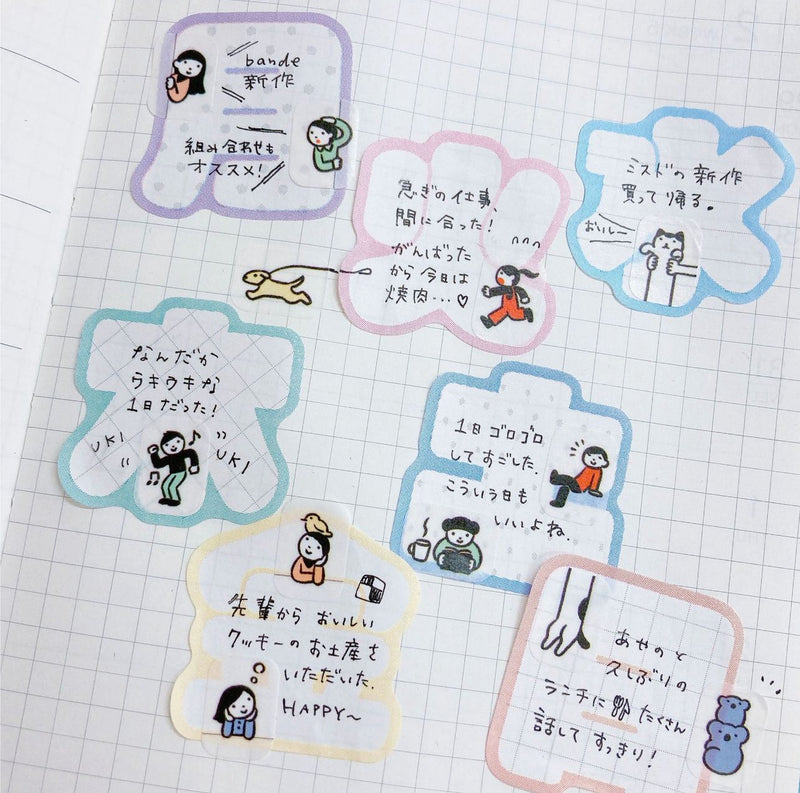 bande
新作
組み合わせも
オススメ!
急ぎの仕事、
間に合った!
がんばった
から今日は
焼肉…♡
ミスドの新作
買って帰る。
おいしー
なんだか
ウキウキな
1日だった!
UKI
UKI
1日ゴロゴロ
してすごした.
こういう日も
いいよね.
先輩から おいしい
クッキーのお土産を
いただいた.
HAPPY~
あやのと
久しぶりの
ランチに たくさん
話してすっきり!